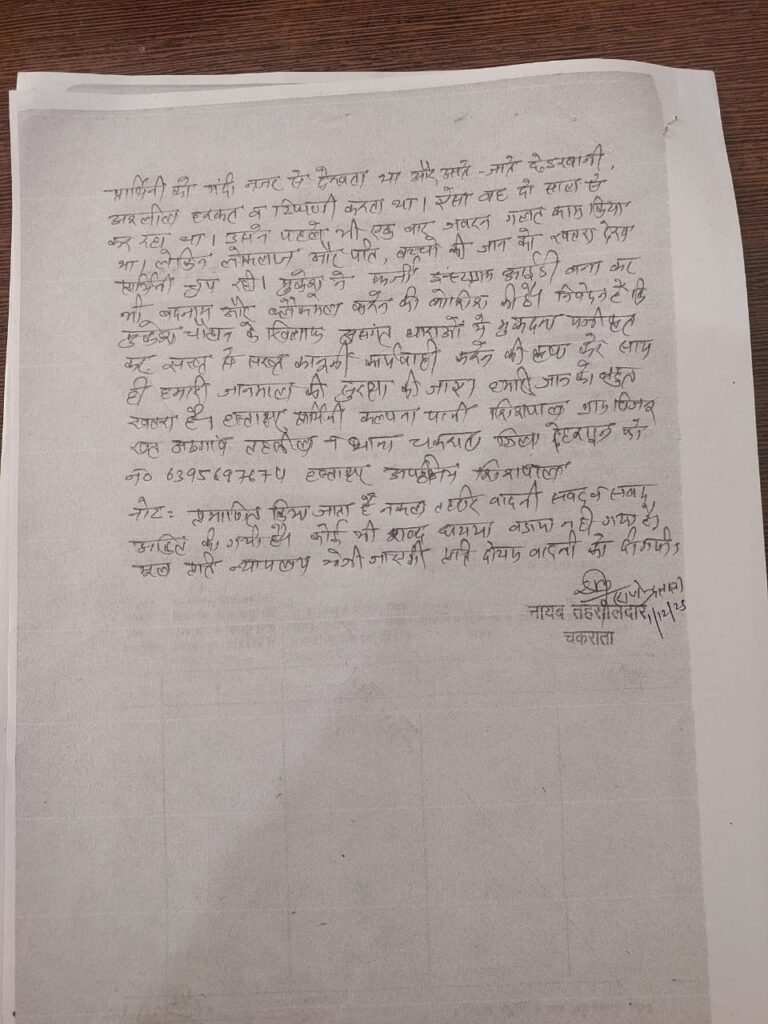 प्रार्थिनी को गंदी नजर से देखता था और आते-जाते छेडखानी,
अश्लील हरकत व टिप्पणी करता था। ऐसा वह दो साल से
कर रहा था। उसने पहले भी एक बार जबरन गलत काम किया
था। लेकिन लोकलाज और पति, बच्चों की जान को खतरा देख
प्रार्थिनी चुप रही। मुकेश ने फर्जी इन्स्टाग्राम आईडी बना कर
भी बदनाम और ब्लैकमेल करने की कोशिश की है। निवेदन है कि
मुकेश चौहान के खिलाफ सुसंगत धाराओं में मुकदमा पंजीकृत
कर सख्त से सख्त कानूनी कार्यवाही करने की कृपा करें साथ
ही हमारी जानमाल की सुरक्षा की जाए। हमारी जान को बहुत
खतरा है। हस्ताक्षर प्रार्थिनी कल्पना पत्नी शिशपाल ग्राम
खत अठगांव तहसील व थाना चकराता जिला देहरादून फोन
नं० 6395697674 हस्ताक्षर अपठनीय शिशपाल
नोट: प्रमाणित किया जाता है नकल तहरीर वादनी शब्द व शब्द
अंकित की गयी है। कोई भी शब्द घटाया बढाया नही गया है।
मूल प्रति न्यायालय भेजी जाएगी प्रति दोयम वादनी को दी गयी।
नायब तहसीलदार 1/12/23
चकराता